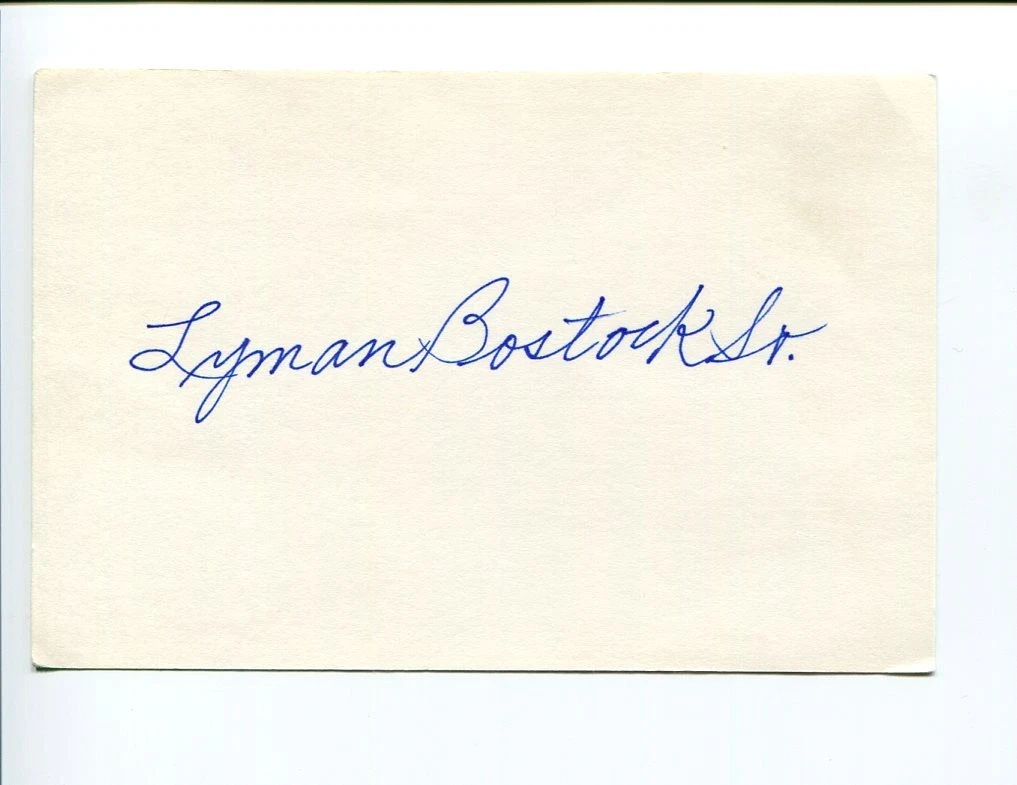 Lyman Bostock Sr.